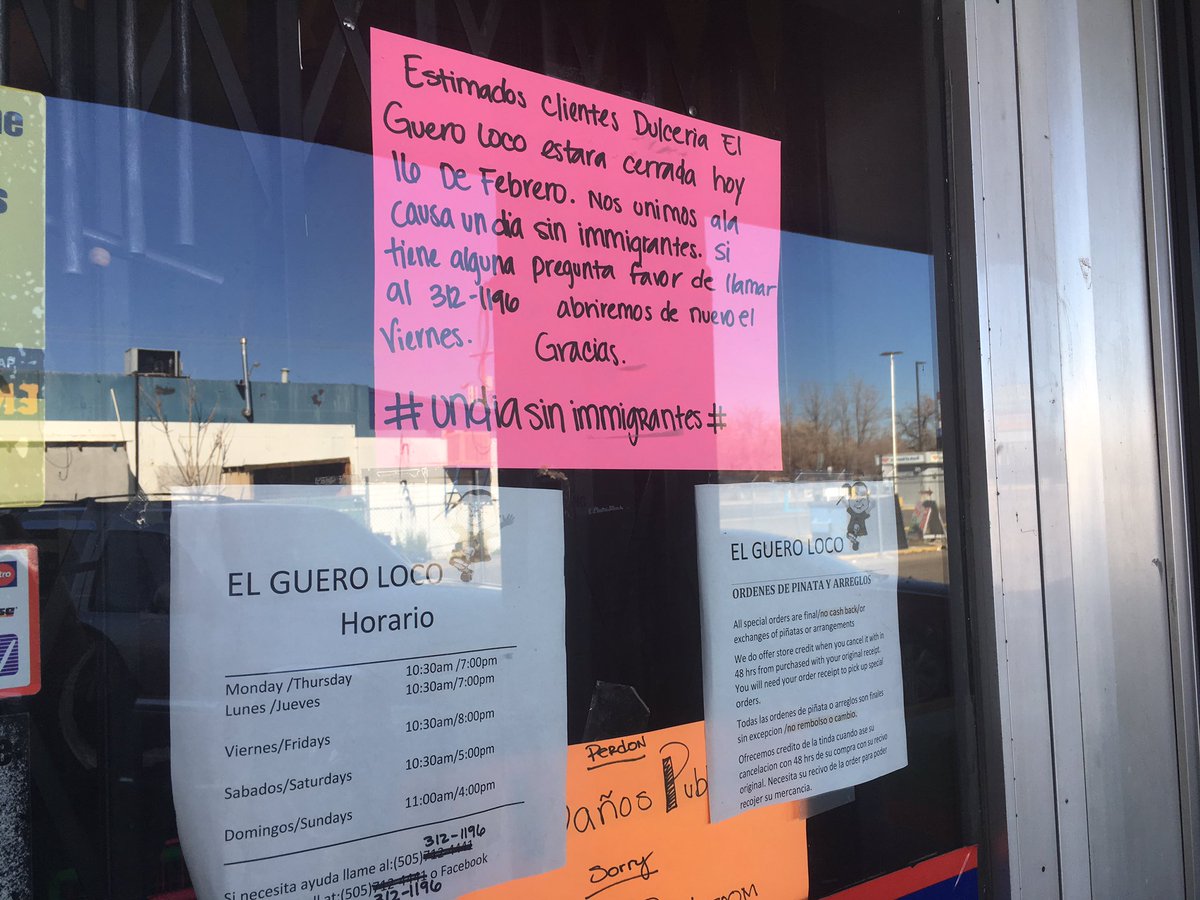 Estimados Clientes Dulceria El
Guero Loco estara cerrada hoy
16 De Febrero. Nos unimos ala
causa un dia sin immigrantes. Si
tiene alguna pregunta favor de llamar
al 312-1196 abriremos de nuevo el
Viernes. Gracias.
#undiasin immigrantes#
EL GUERO LOCO
Horario
Monday /Thursday 10:30am /7:00pm
Lunes /Jueves 10:30am /7:00pm
Viernes/Fridays 10:30am/8:00pm
Sabados/Saturdays 10:30am/5:00pm
Domingos/Sundays 11:00am/4:00pm
312-1196
Si necesita ayuda llame al:(505) 712-4441
at:(505) 712-4441 o Facebook
312-1196
EL GUERO LOCO
ORDENES DE PINATA Y ARREGLOS
All special orders are final/no cash back/or
exchanges of piñatas or arrangements
We do offer store credit when you cancel it with in
48 hrs from purchased with your original receipt.
You will need your order receipt to pick up special
orders.
Todas las ordenes de piñata o arreglos son finales
sin excepcion /no rembolso o cambio.
Ofrecemos credito de la tinda cuando ase su
cancelacion con 48 hrs de su compra con su recivo
original. Necesita su recivo de la order para poder
recojer su mercancia.
Perdon
años Pub
Sorry